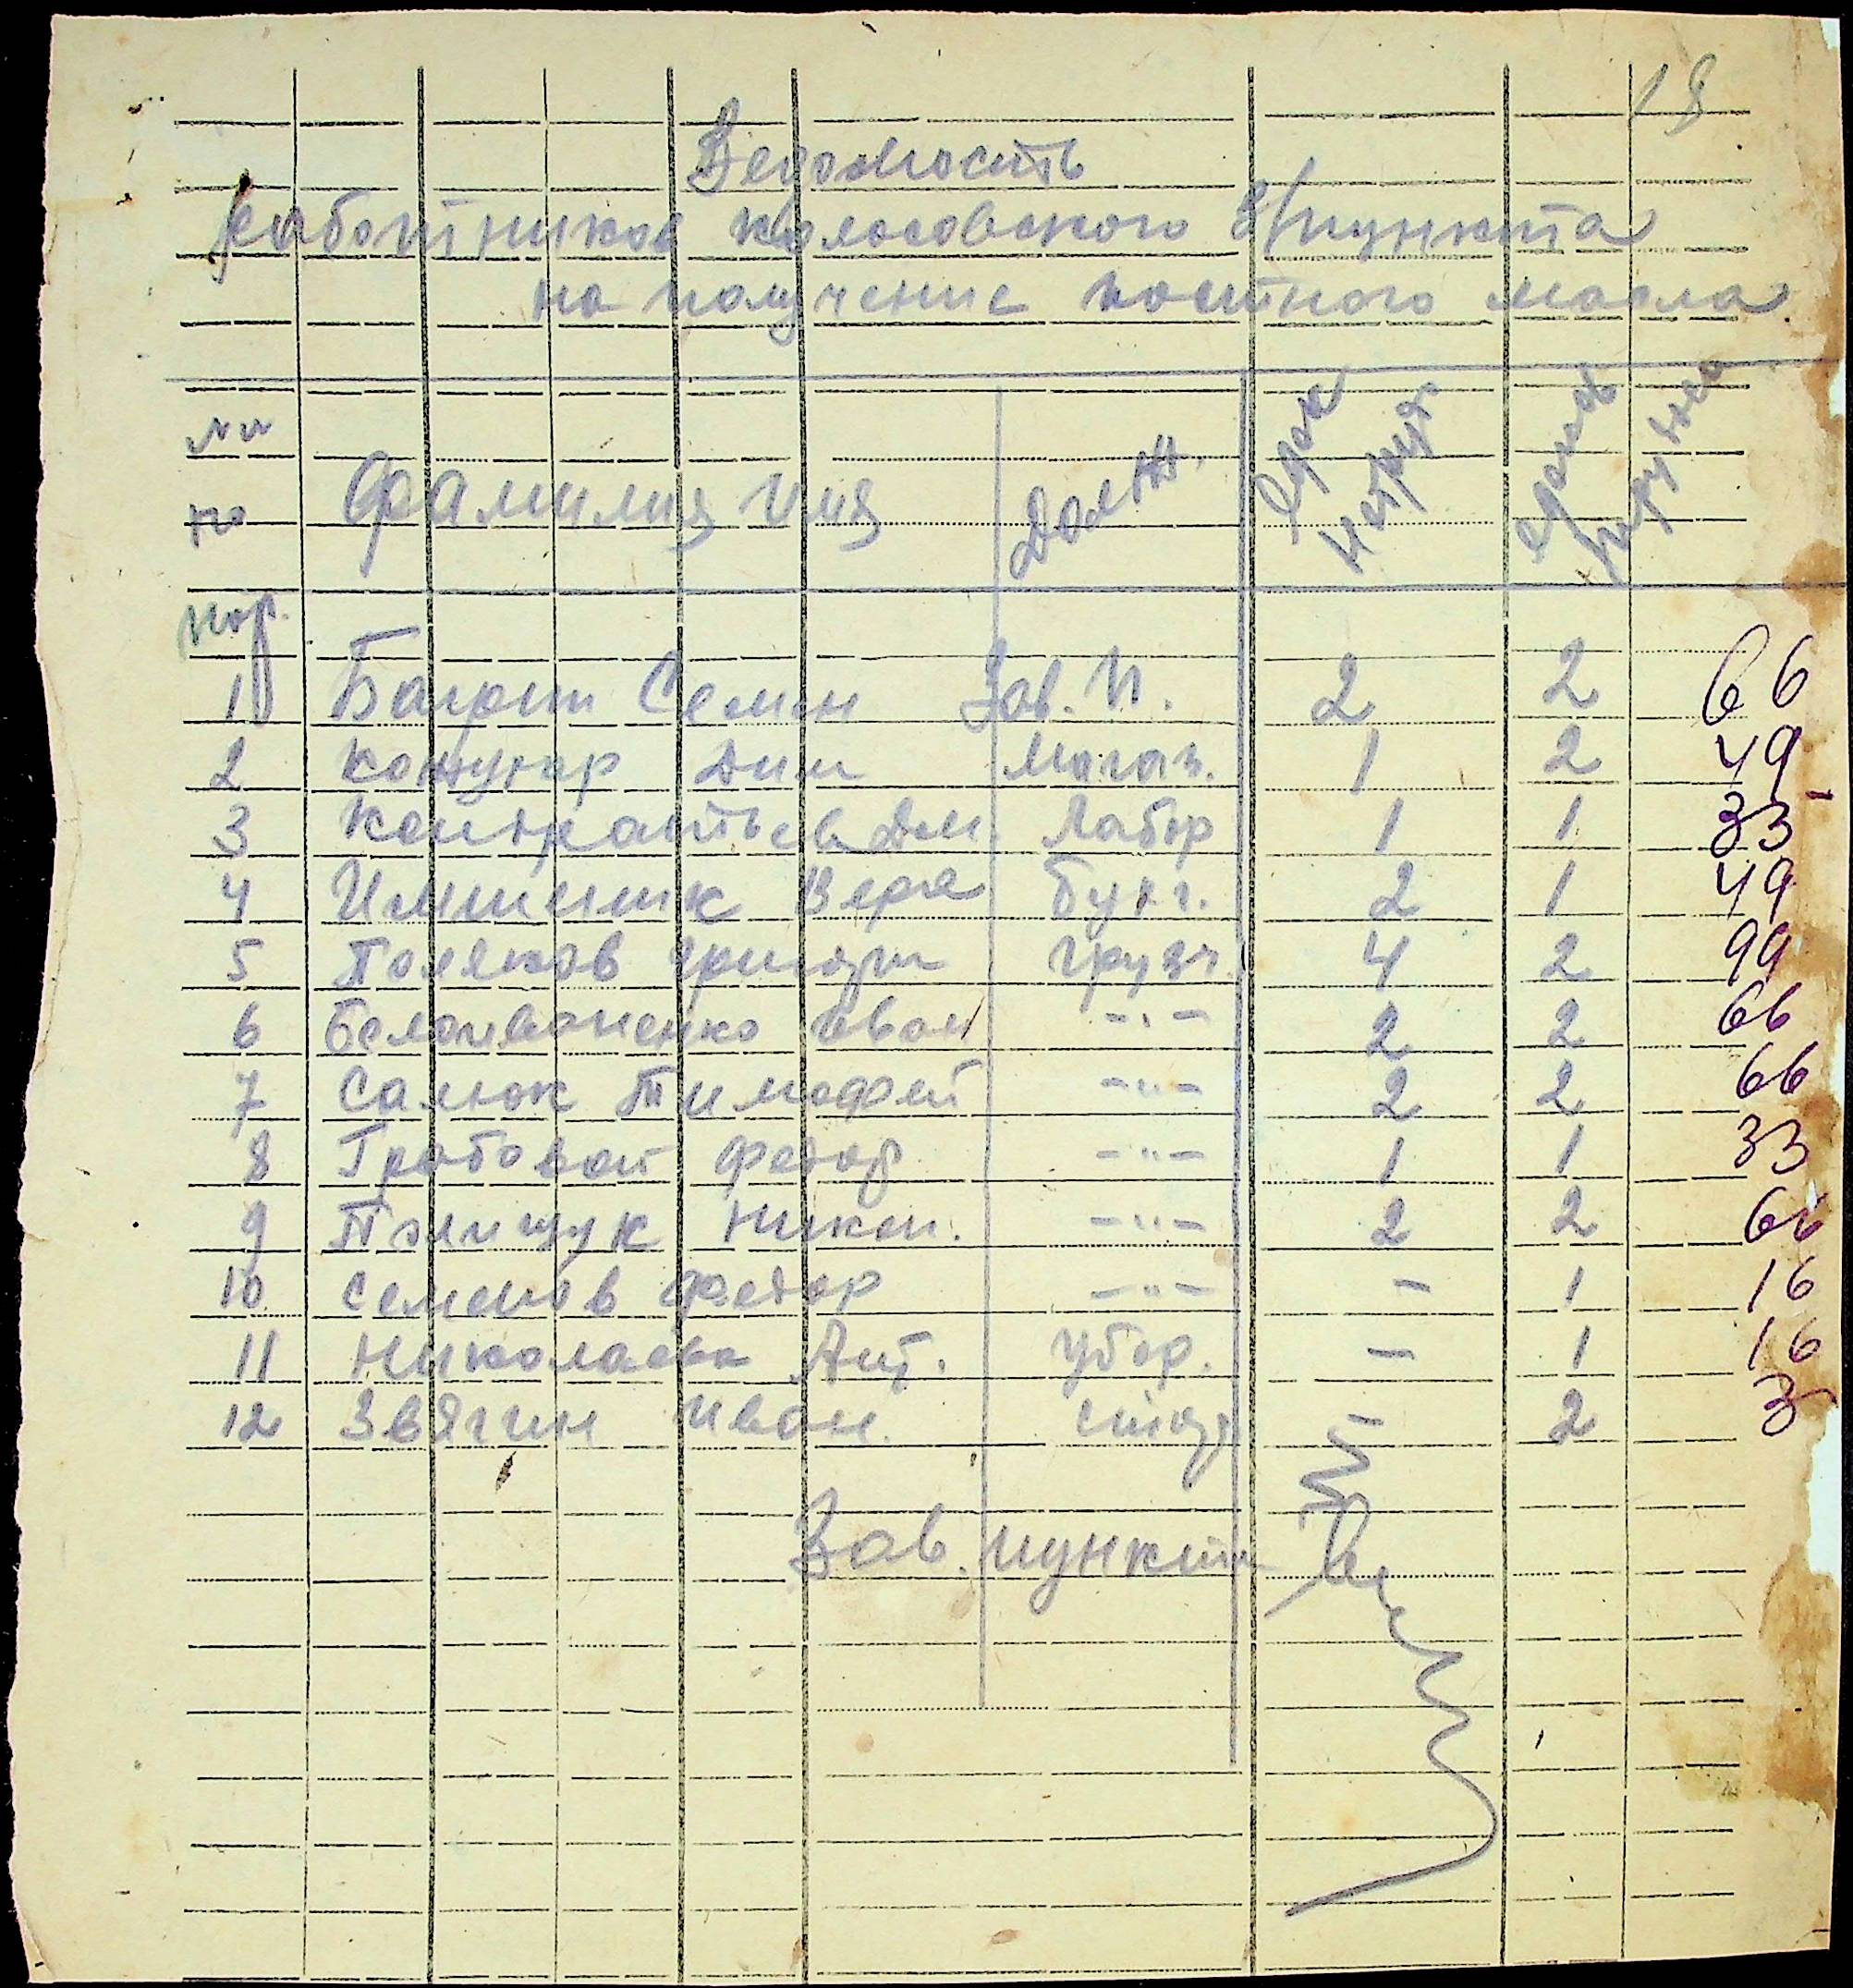 18
Ведомость
работников колосовского З/пункта
на получение постного масла.
№№ по пор. Фамилия Имя Долж.
1 Багрин Семен Зав. П. 2 2 66
2 Кожухар Дим Магаз. 1 2 49
3 Кондратьев Дм. Лабор 1 1 33
4 Вера бухг. 2 1 49
5 Поляков Григори грузч. 4 2 99
6 Белоиваненко Иван -"- 2 2 66
7 Салюк Тимофей -"- 2 2 66
8 Грабовой Федор -"- 1 1 33
9 Полищук Никол. -"- 2 2 66
10 Семенов Федор -"- - 1 16
11 Николаева Ант. Убор. - 1 16
12 Звягин Иван. - 2 3
Зав. пункта